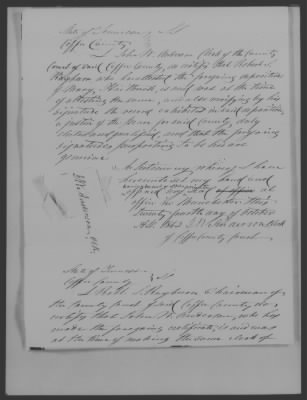 State of Tennessee
Coffee County
I John W. Anderson Clerk of the County
Court of said Coffee County, do certify that Robert S.
Rayburn who has attested the foregoing deposition
of Mary, is and was at the time
of attesting the same, and also certifying by his
signature the record exhibited in said deposition
a justice of the Peace for said County, duly
elected and qualified, and that the foregoing
signatures purporting to be his are
genuine
In testimony whereof I have
hereunto set my hand and
affixed my seal of office at
office in Manchester this
twenty fourth day of October
A.D. 1843 J W Anderson Clerk
of Coffee County Court
J W Anderson, clk.
State of Tennessee
Coffee County
I S. Rayburn Chairman of
the County Court of said Coffee County do
certify that John W. Anderson, who has
made the foregoing certificate, is and was
at the time of making the same clerk of